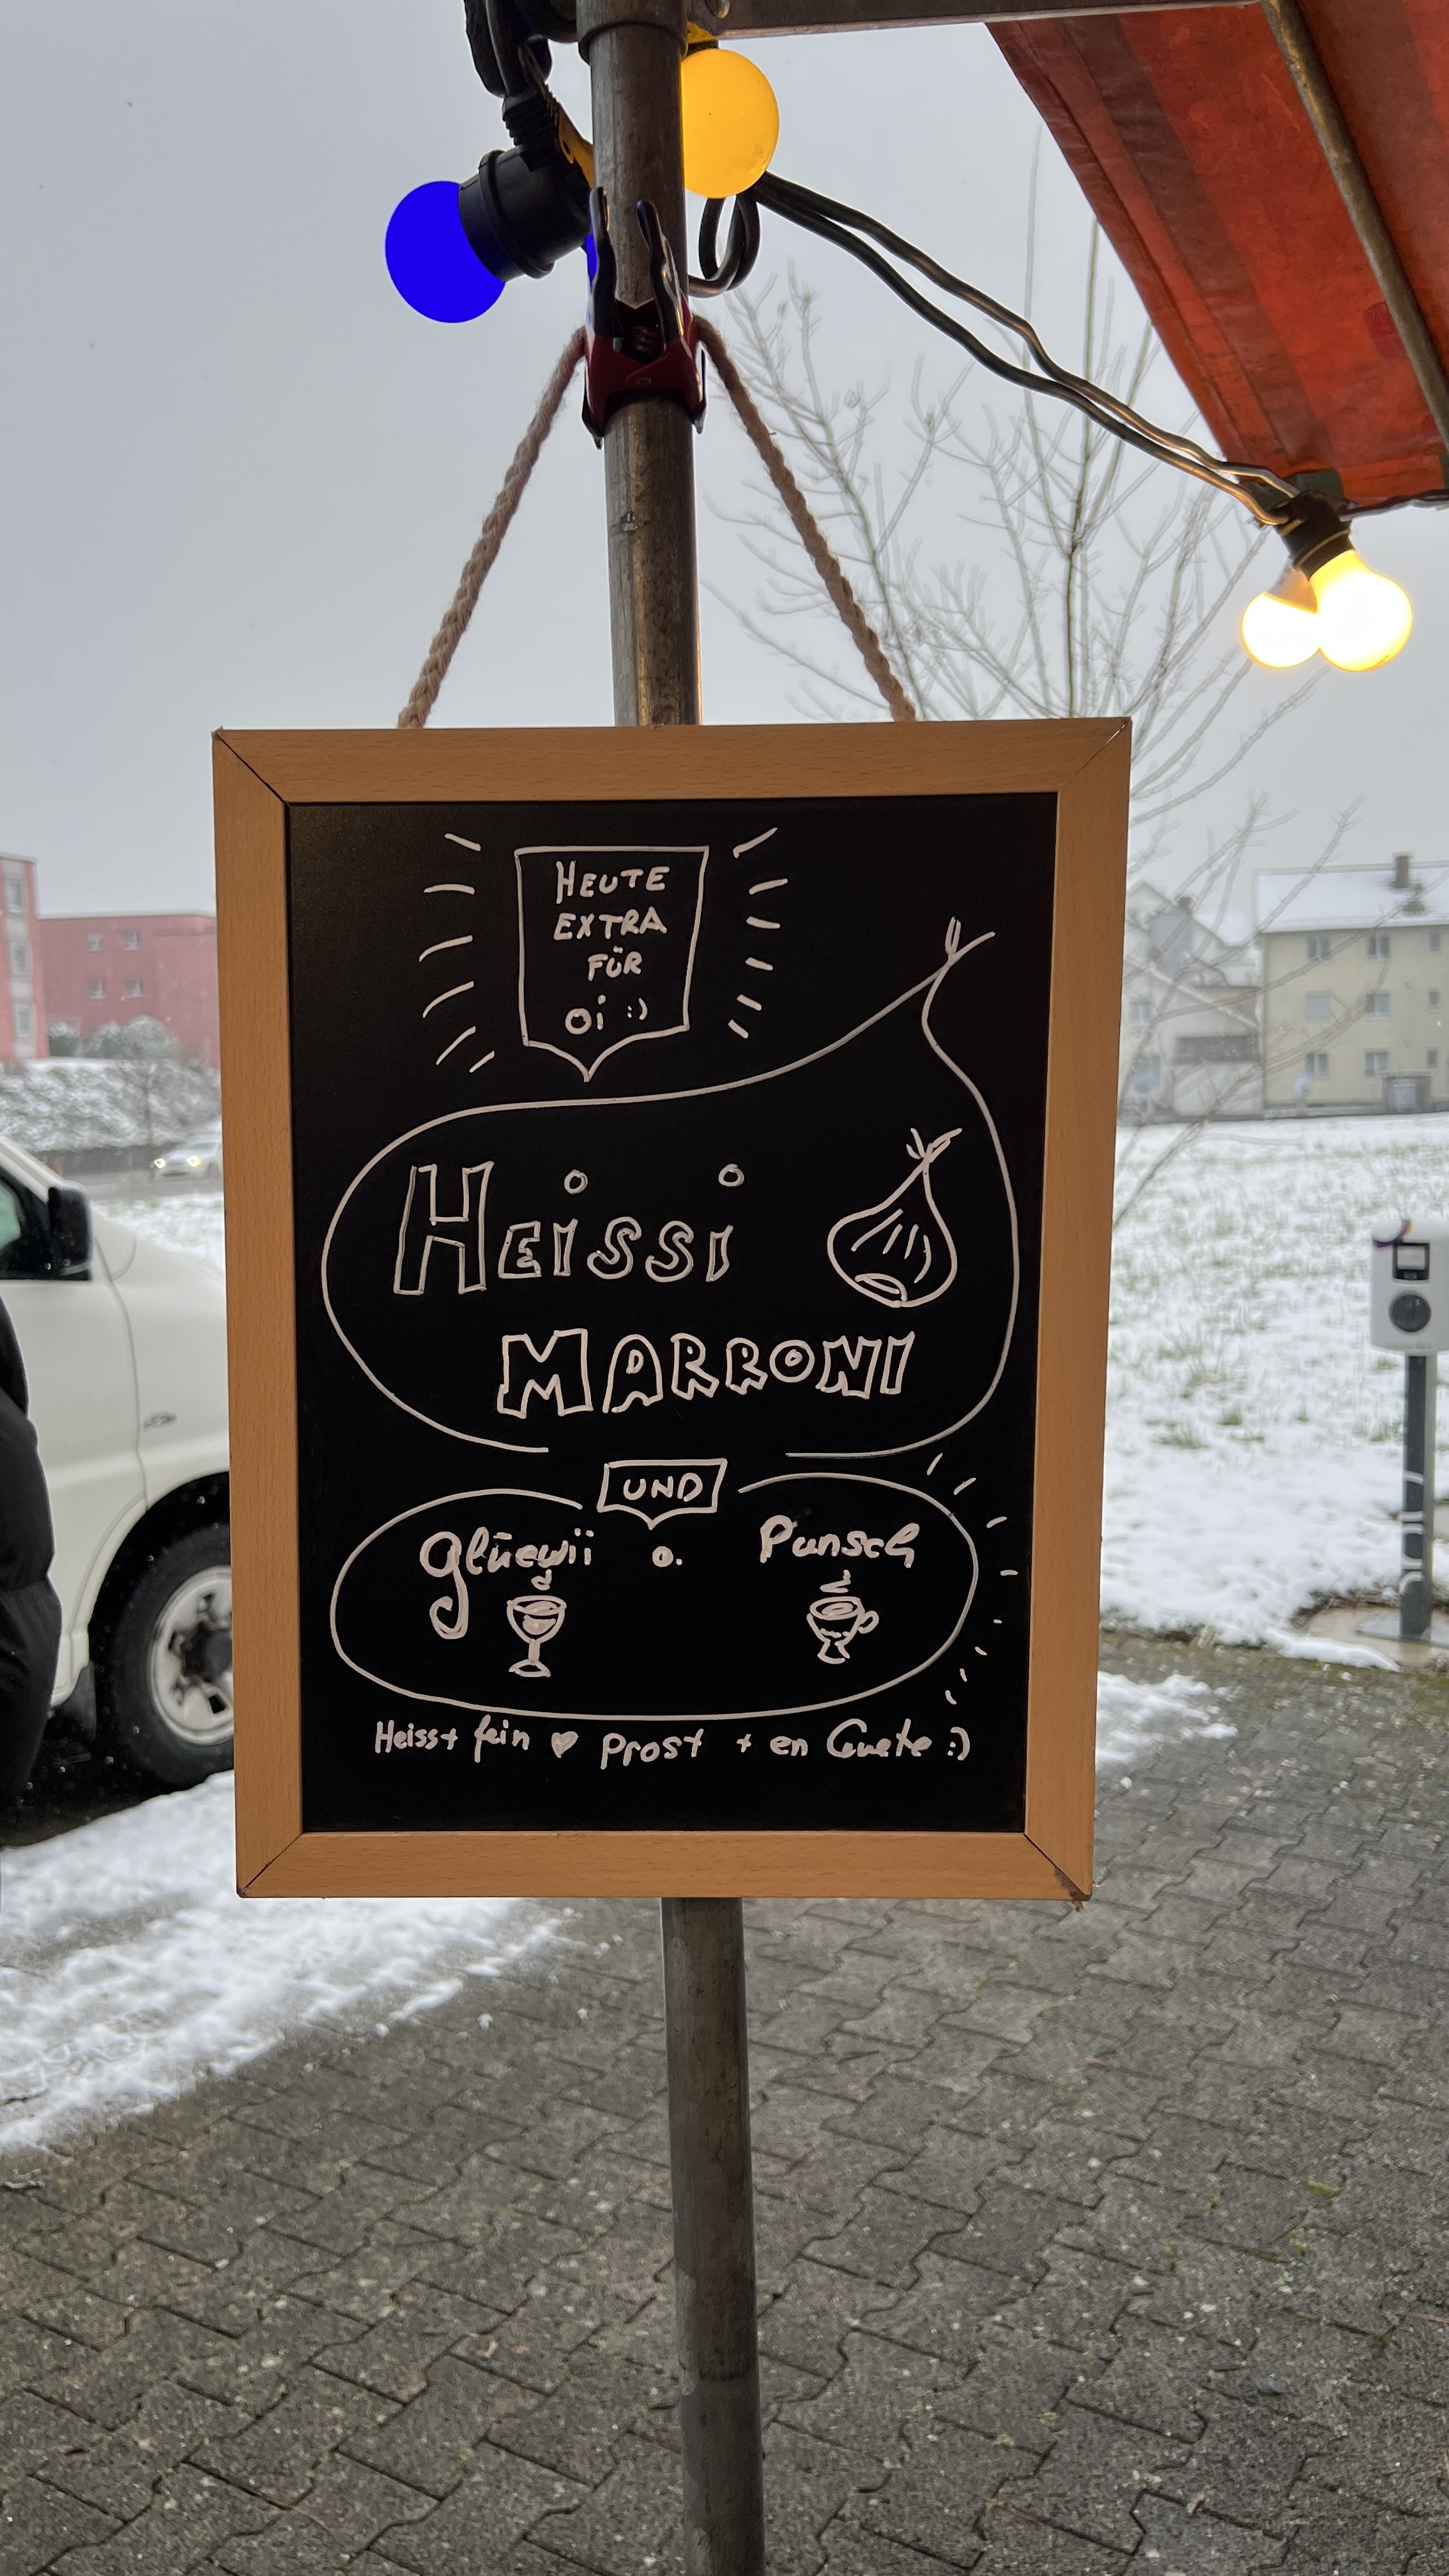 HEUTE
EXTRA
FÜR
oi :)
HEISSI
MARRONI
UND
glüewii o. Punsch
Heiss+ fein ♥ Prost + en Guete :)